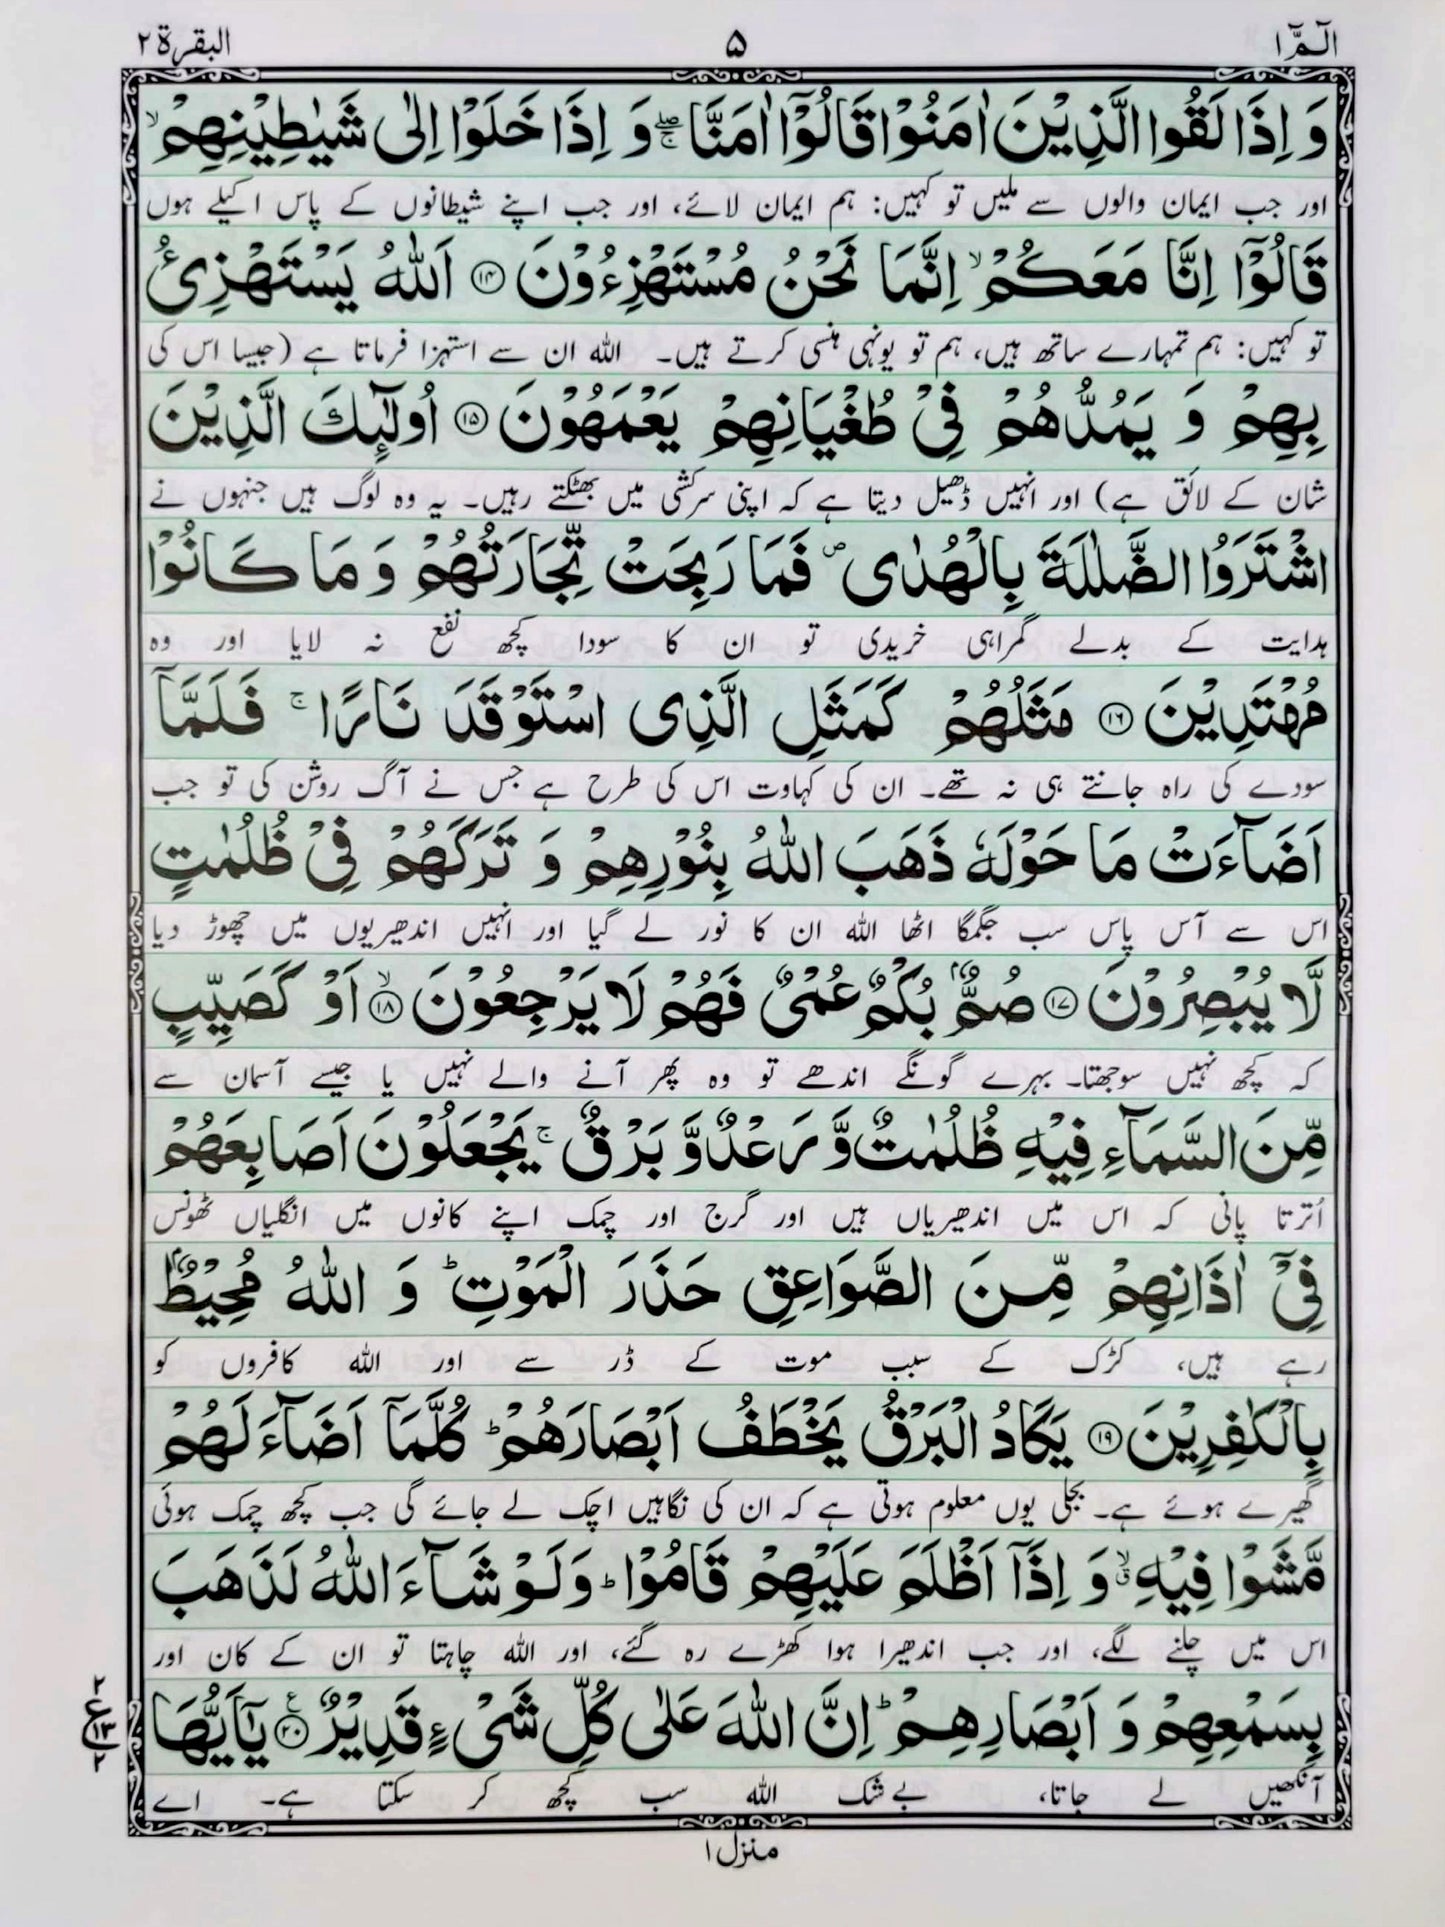 الٓمّٓ ۱
۵
البقرۃ ۲
وَ اِذَا لَقُوا الَّذِیْنَ اٰمَنُوْا قَالُوْۤا اٰمَنَّا ۖۚ وَ اِذَا خَلَوْا اِلٰى شَیٰطِیْنِهِمْ ۙ
اور جب ایمان والوں سے ملیں تو کہیں: ہم ایمان لائے، اور جب اپنے شیطانوں کے پاس اکیلے ہوں
قَالُوْۤا اِنَّا مَعَكُمْ ۙ اِنَّمَا نَحْنُ مُسْتَهْزِءُوْنَ ﴿۱۴﴾ اَللّٰهُ یَسْتَهْزِئُ
تو کہیں: ہم تمہارے ساتھ ہیں، ہم تو یونہی ہنسی کرتے ہیں۔ اللہ ان سے استہزا فرماتا ہے (جیسا اس کی
بِهِمْ وَ یَمُدُّهُمْ فِیْ طُغْیَانِهِمْ یَعْمَهُوْنَ ﴿۱۵﴾ اُولٰٓىِٕكَ الَّذِیْنَ
شان کے لائق ہے) اور انہیں ڈھیل دیتا ہے کہ اپنی سرکشی میں بھٹکتے رہیں۔ یہ وہ لوگ ہیں جنہوں نے
اشْتَرَوُا الضَّلٰلَةَ بِالْهُدٰى ۪ فَمَا رَبِحَتْ تِّجَارَتُهُمْ وَ مَا كَانُوْا
ہدایت کے بدلے گمراہی خریدی تو ان کا سودا کچھ نفع نہ لایا اور وہ
مُهْتَدِیْنَ ﴿۱۶﴾ مَثَلُهُمْ كَمَثَلِ الَّذِی اسْتَوْقَدَ نَارًا ۚ فَلَمَّاۤ
سودے کی راہ جانتے ہی نہ تھے۔ ان کی کہاوت اس کی طرح ہے جس نے آگ روشن کی تو جب
اَضَآءَتْ مَا حَوْلَهٗ ذَهَبَ اللّٰهُ بِنُوْرِهِمْ وَ تَرَكَهُمْ فِیْ ظُلُمٰتٍ
اس سے آس پاس سب جگمگا اٹھا اللہ ان کا نور لے گیا اور انہیں اندھیریوں میں چھوڑ دیا
لَّا یُبْصِرُوْنَ ﴿۱۷﴾ صُمٌّۢ بُكْمٌ عُمْیٌ فَهُمْ لَا یَرْجِعُوْنَ ﴿۱۸﴾ ۙ اَوْ كَصَیِّبٍ
کہ کچھ نہیں سوجھتا۔ بہرے گونگے اندھے تو وہ پھر آنے والے نہیں یا جیسے آسمان سے
مِّنَ السَّمَآءِ فِیْهِ ظُلُمٰتٌ وَّ رَعْدٌ وَّ بَرْقٌ ۚ یَجْعَلُوْنَ اَصَابِعَهُمْ
اُترتا پانی کہ اس میں اندھیریاں ہیں اور گرج اور چمک اپنے کانوں میں انگلیاں ٹھونس
فِیْۤ اٰذَانِهِمْ مِّنَ الصَّوَاعِقِ حَذَرَ الْمَوْتِ ؕ وَ اللّٰهُ مُحِیْطٌۢ
رہے ہیں، کڑک کے سبب موت کے ڈر سے اور اللہ کافروں کو
بِالْكٰفِرِیْنَ ﴿۱۹﴾ یَكَادُ الْبَرْقُ یَخْطَفُ اَبْصَارَهُمْ ؕ كُلَّمَاۤ اَضَآءَ لَهُمْ
گھیرے ہوئے ہے۔ بجلی یوں معلوم ہوتی ہے کہ ان کی نگاہیں اچک لے جائے گی جب کچھ چمک ہوئی
مَّشَوْا فِیْهِ ۙۗ وَ اِذَاۤ اَظْلَمَ عَلَیْهِمْ قَامُوْا ؕ وَ لَوْ شَآءَ اللّٰهُ لَذَهَبَ
اس میں چلنے لگے، اور جب اندھیرا ہوا کھڑے رہ گئے، اور اللہ چاہتا تو ان کے کان اور
بِسَمْعِهِمْ وَ اَبْصَارِهِمْ ؕ اِنَّ اللّٰهَ عَلٰى كُلِّ شَیْءٍ قَدِیْرٌ ﴿۲۰﴾ ع یٰۤاَیُّهَا
آنکھیں لے جاتا، بے شک اللہ سب کچھ کر سکتا ہے۔ اے
۲
ع ۱۳
۲
منزل ۱